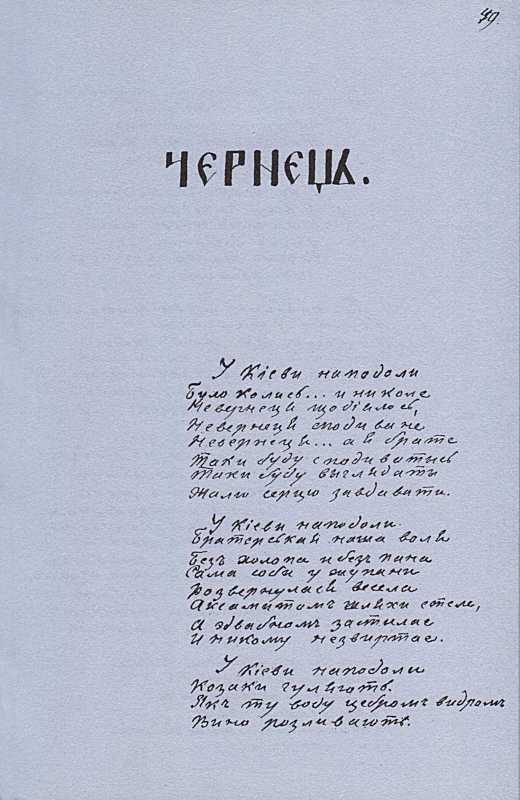 49.
ЧЕРНЕЦЬ.
У Кіеви наподоли
Було колись... и николе
Невернецця щодіялось,
Невернецця сподиване
Невернецця... а я брате
Таки буду сподиватысь
Таки буду выглядати
Жалю серцю завдавати.
У Кіеви наподоли
Братерськая наша воля
Безъ холопа и безъ пана
Сама соби у жупани
Розвернулася весела
Аксамитомъ шляхи стеле,
А едвабномъ застилае
И никому незвиртае.
У Кіеви наподоли
Козаки гуляють.
Якъ ту воду цебромъ видромъ
Вино розливають.